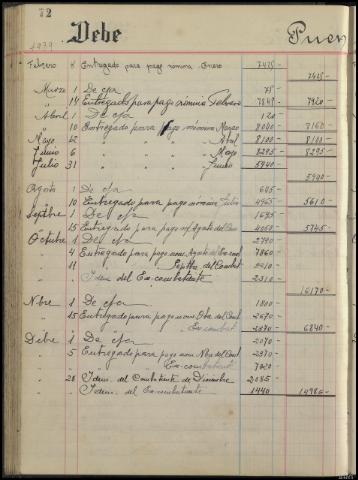 72
1939
Debe
Puen
Febrero " Entregado para pago nomina Enero 7425-
7425-
Marzo 1 De cja 75-
" 14 Entregado para pago nomina Febrero 7845 7920-
Abril 1 De cja 120
" 10 Entregado para pago nómina Marzo 8040 8160-
Mayo 12 " " " " Abril 8100- 8100-
Junio 6 " " " " Mayo 8295- 8295-
Julio 31 " " " " Junio 5940-
5940-
Agosto 1 De cja 605-
" 10 Entregado para pago nómina Julio 4965 5610-
Sepbre 1 De cja 1695-
" 15 Entregado para pago Agosto del 4050 5745-
Octubre 1 De cja
" 4 Entregado para pago nom. Agosto del Excomb 7860-
" 11 " " " Sepbre del Combat
" " Idem. del Ex-combatiente 2310-
16170-
Nbre 1 De cja 1800-
" 15 Entregado para pago nom. Obre del Comb 2670-
" " " " Ex-combat 6840-
Dibre 1 De cja 2070-
" 5 Entregado para pago nom. Nbre del Comb
" " " " Ex-combatient
" 28 Idem. del Combatiente de Diciembre 2085-
" " Idem. del Excombatiente 1440